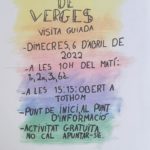 DE VERGES
VISITA GUIADA
- DIMECRES, 6 D'ABRIL DE
2022
- A LES 10H DEL MATÍ:
1r, 2n, 3r, 6è.
- A LES 15:15: OBERT A
TOTHOM
- PUNT DE INICI, AL PUNT
D'INFORMACIÓ
- ACTIVITAT GRATUÏTA
NO CAL APUNTAR-SE.